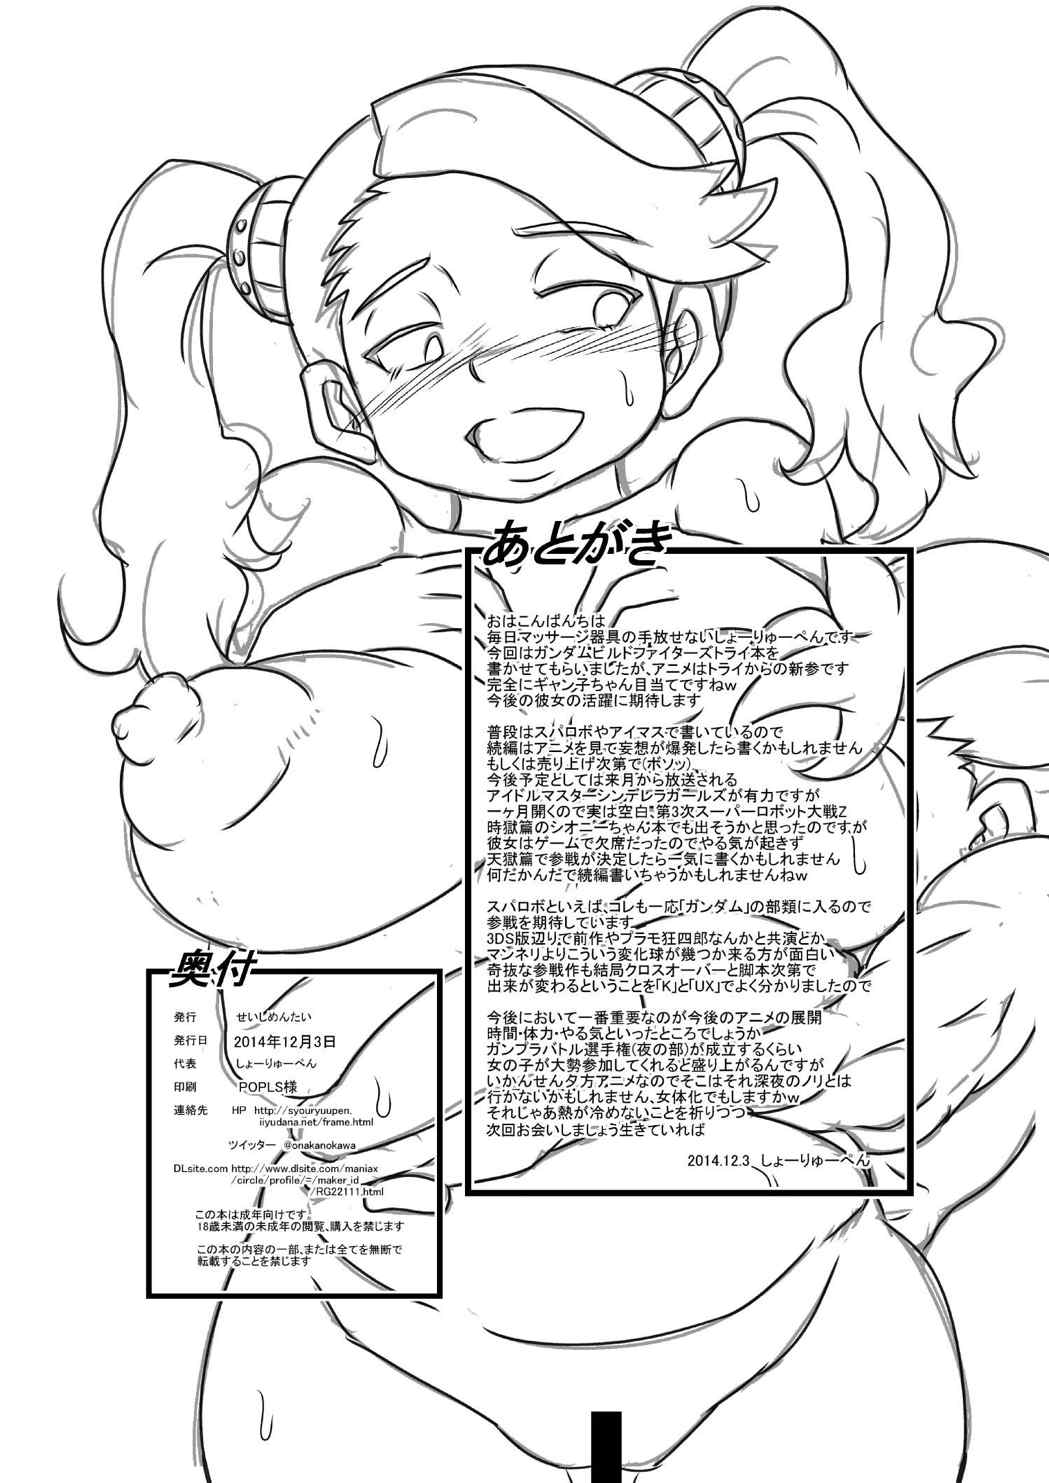 あとがき
おはこんばんちは
毎日マッサージ器具の手放せないしょーりゅーぺんです
今回はガンダムビルドファイターズトライ本を
書かせてもらいましたが、アニメはトライからの新参です
完全にギャン子ちゃん目当てですねw
今後の彼女の活躍に期待します
普段はスパロボやアイマスで書いているので
続編はアニメを見て妄想が爆発したら書くかもしれません
もしくは売り上げ次第で(ボソッ)
今後予定としては来月から放送される
アイドルマスターシンデレラガールズが有力ですが
一ヶ月開くので実は空白、第3次スーパーロボット大戦Z
時獄篇のシオニーちゃん本でも出そうかと思ったのですが
彼女はゲームで欠席だったのでやる気が起きず
天獄篇で参戦が決定したら一気に書くかもしれません
何だかんだで続編書いちゃうかもしれませんねw
スパロボといえば、コレも一応「ガンダム」の部類に入るので
参戦を期待しています
3DS版辺りで前作やプラモ狂四郎なんかと共演とか
マンネリよりこういう変化球が幾つか来る方が面白い
奇抜な参戦作も結局クロスオーバーと脚本次第で
出来が変わるということを「K」と「UX」でよく分かりましたので
今後において一番重要なのが今後のアニメの展開
時間・体力・やる気といったところでしょうか
ガンプラバトル選手権(夜の部)が成立するくらい
女の子が大勢参加してくれるど盛り上がるんですが
いかんせん夕方アニメなのでそこはそれ深夜のノリとは
行かないかもしれません、女体化でもしますかw
それじゃあ熱が冷めないことを祈りつつ
次回お会いしましょう生きていれば
2014.12.3 しょーりゅーぺん
奥付
発行 せいじめんたい
発行日 2014年12月3日
代表 しょーりゅーぺん
印刷 POPLS様
連絡先 HP http://syouryuupen.
iiyudana.net/frame.html
ツイッター @onakanokawa
DLsite.com http://www.dlsite.com/maniax
/circle/profile/=/maker_id
/RG22111.html
この本は成年向けです。
18歳未満の未成年の閲覧、購入を禁じます
この本の内容の一部、または全てを無断で
転載することを禁じます